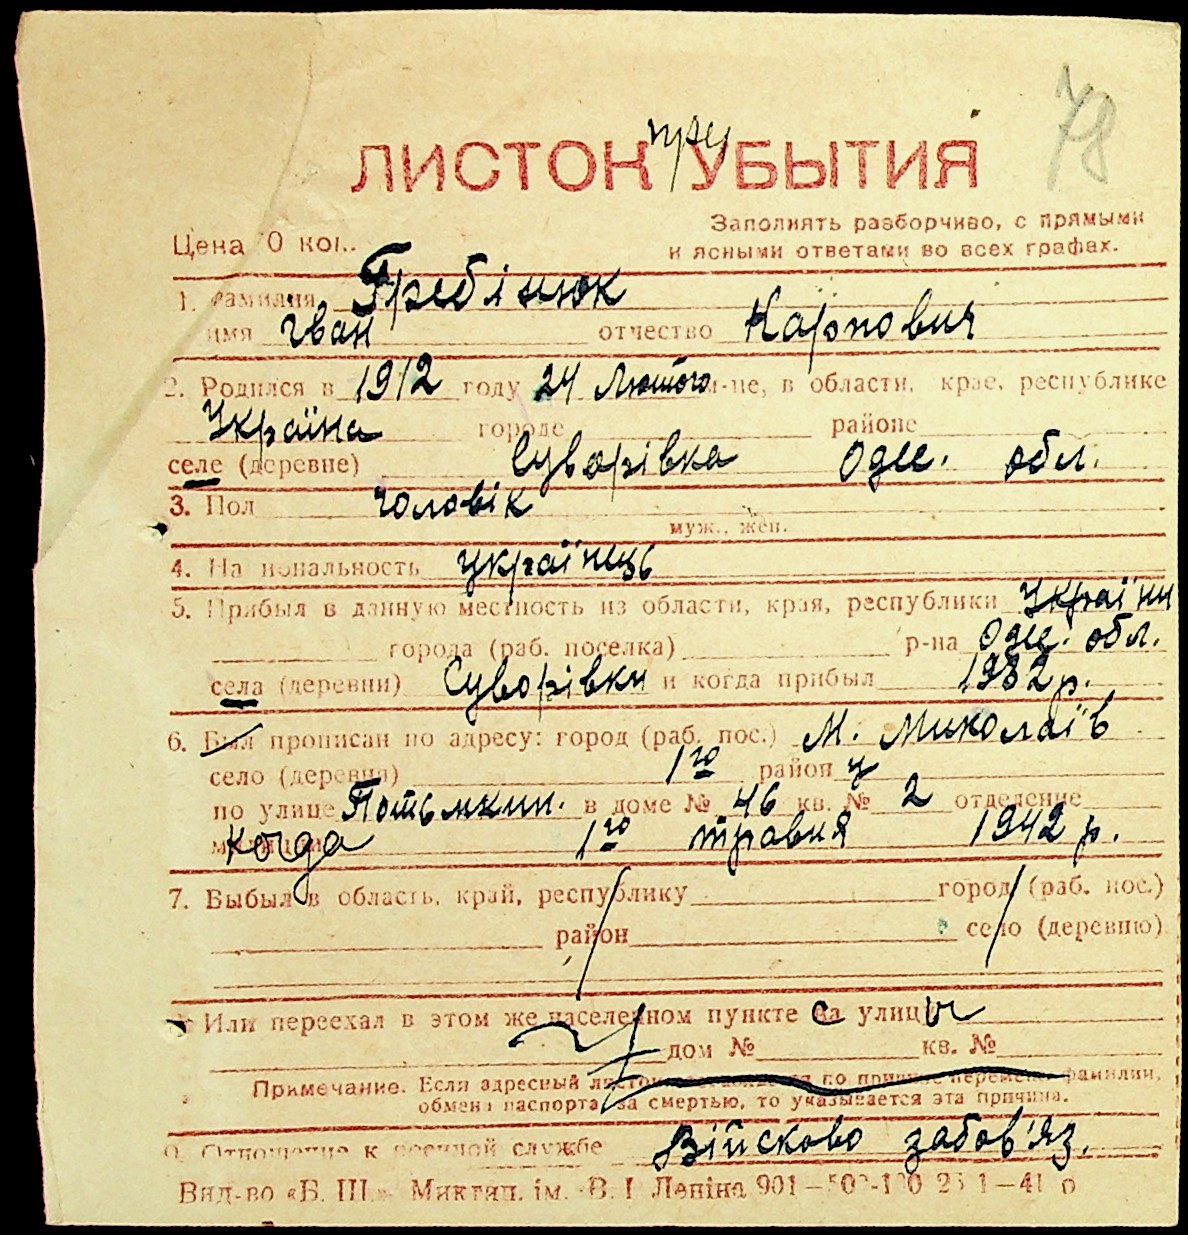 78
при
ЛИСТОК УБЫТИЯ
Заполнять разборчиво, с прямыми
Цена 0 коп.
и ясными ответами во всех графах.
1. Фамилия Гребінюк
имя Іван отчество Карпович
2. Родился в 1912 году 24 Лютого м-це, в области, крае, республике
Україна городе районе
селе (деревне) Суворівка Одес. обл.
3. Пол чоловік
муж., жен.
4. Национальность українець
5. Прибыл в данную местность из области, края, республики України
города (раб. поселка) р-на Одес. обл.
села (деревни) Суворівки и когда прибыл 1932 р.
6. Был прописан по адресу: город (раб. пос.) М. Миколаїв
село (деревня) 1го район у
по улице Потьмкин. в доме № 46 кв. № 2 отделение
милиции когда 1го травня 1942 р.
7. Выбыл в область, край, республику город (раб. пос.)
район село (деревню)
Или переехал в этом же населенном пункте с на улицы
дом № кв. №
Примечание. Если адресный листок по причине перемены фамилии,
обмена паспорта, за смертью, то указывается эта причина.
9. Отношение к военной службе Військово забов'яз.
Вид-во «Б. Ш.» Миктип. ім. В. І Леніна 901—50-100 25 1—41 р